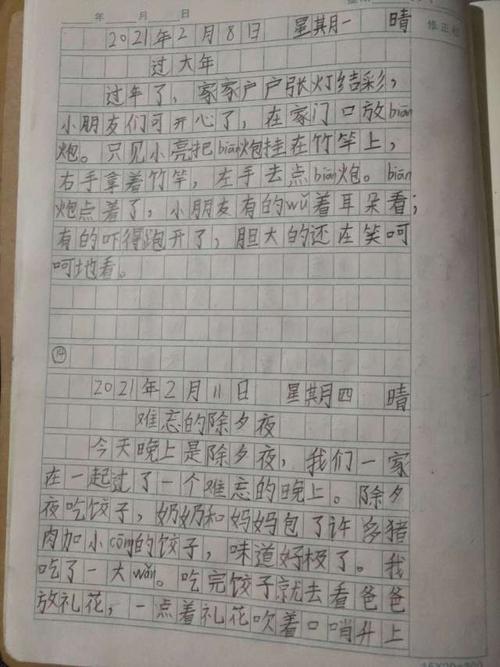 年 月 日
修正栏
2021年2月8日 星期一 晴
过大年
过年了，家家户户张灯结彩，
小朋友们可开心了，在家门口放biān
炮。只见小亮把biān炮挂在竹竿上，
右手拿着竹竿，左手去点biān炮。biān
炮点着了，小朋友有的wǔ着耳朵看；
有的吓得跑开了，胆大的还在笑呵
呵地看。
14
2021年2月11日 星期四 晴
难忘的除夕夜
今天晚上是除夕夜，我们一家
在一起过了一个难忘的晚上。除夕
夜吃饺子，奶奶和妈妈包了许多猪
肉加小cōng的饺子，味道好极了。我
吃了一大wǎn。吃完饺子就去看爸爸
放礼花，一点着礼花吹着口哨升上